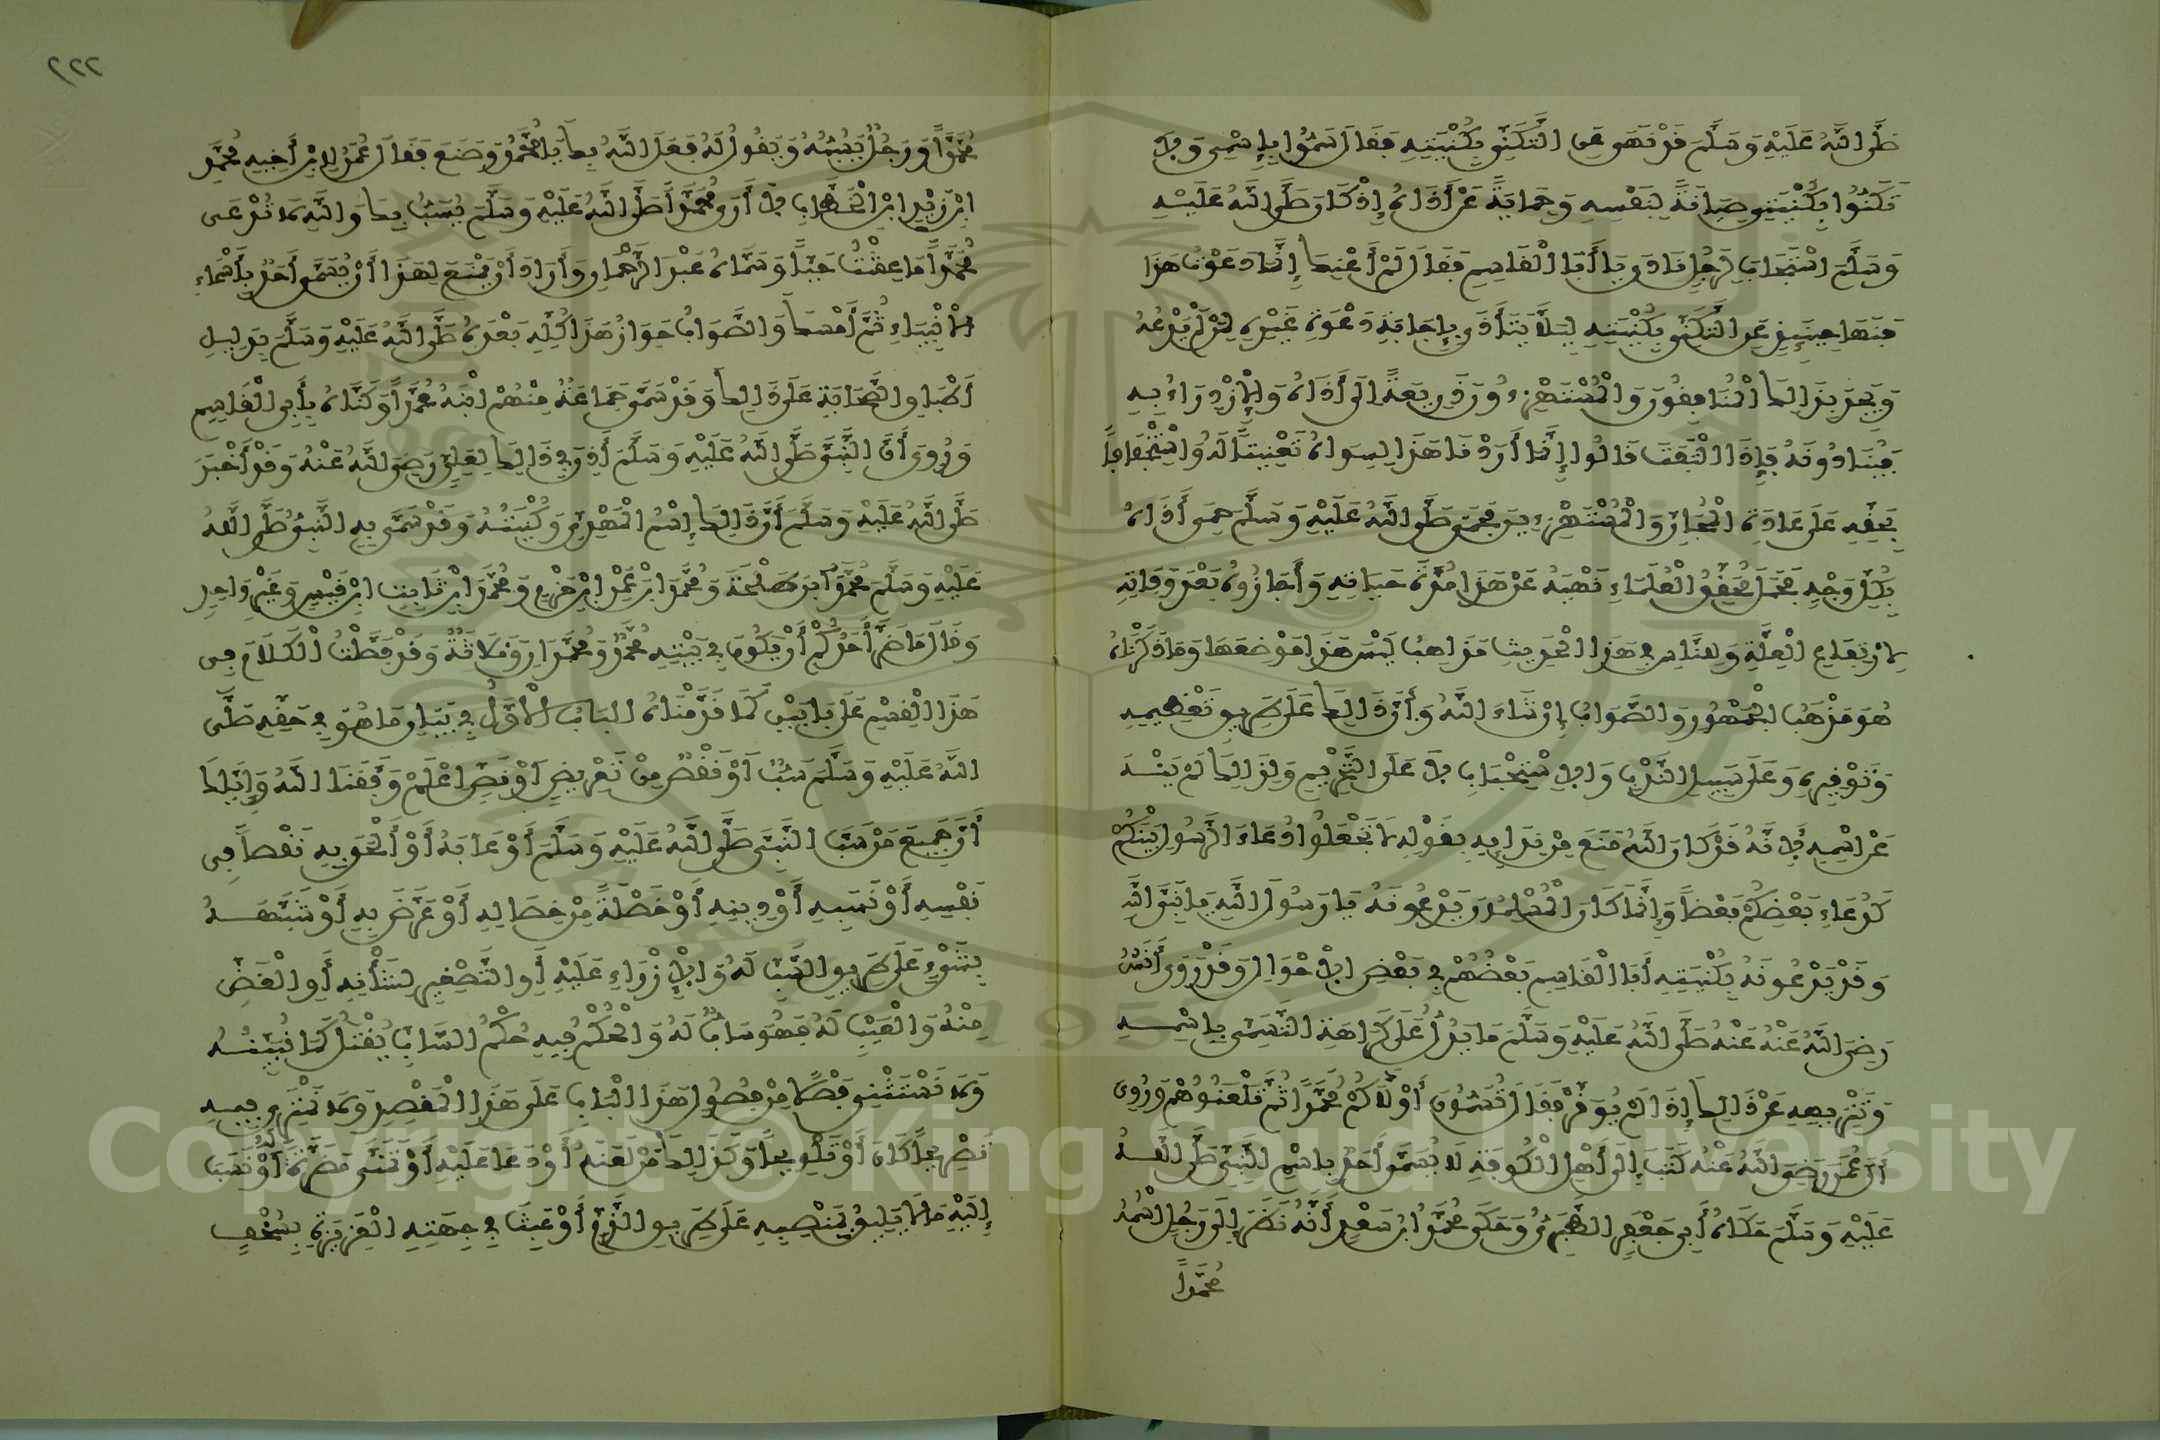 صَلَّى اللَّهُ عَلَيْهِ وَسَلَّمَ قَدْ نَهَى عَنِ التَّكَنِّي بِكُنْيَتِهِ فَقَالَ سَمُّوا بِاسْمِي وَلَا
تَكَنَّوْا بِكُنْيَتِي صِيَانَةً لِنَفْسِهِ وَحِمَايَةً عَنْ أَذَاهُ إِذْ كَانَ صَلَّى اللَّهُ عَلَيْهِ
وَسَلَّمَ اسْتَجَابَ لِرَجُلٍ نَادَى يَا أَبَا الْقَاسِمِ فَقَالَ لَمْ أَعْنِكَ إِنَّمَا دَعَوْتُ هَذَا
فَنَهَى حِينَئِذٍ عَنِ التَّكَنِّي بِكُنْيَتِهِ لِيَلَّا يَتَأَذَّى بِإِجَابَةِ دَعْوَةِ غَيْرِهِ لِمَنْ لَمْ يَدْعُهُ
وَيَجِدَ بِذَلِكَ الْمُنَافِقُونَ وَالْمُسْتَهْزِءُونَ ذَرِيعَةً إِلَى أَذَاهُ وَالْإِزْرَاءِ بِهِ
فَيُنَادُونَهُ فَإِذَا الْتَفَتَ قَالُوا إِنَّمَا أَرَدْنَا هَذَا لِسِوَاهُ تَعْنِيتًا لَهُ وَاسْتِخْفَافًا
بِحَقِّهِ عَلَى عَادَةِ الْمُجَّانِ وَالْمُسْتَهْزِءِينَ فَحَمَى صَلَّى اللَّهُ عَلَيْهِ وَسَلَّمَ حِمَى أَذَاهُ
بِكُلِّ وَجْهٍ فَحَمَلَ مُحَقِّقُو الْعُلَمَاءِ نَهْيَهُ عَنْ هَذَا مُدَّةَ حَيَاتِهِ وَأَجَازُوهُ بَعْدَ وَفَاتِهِ
لِارْتِفَاعِ الْعِلَّةِ وَلِلنَّاسِ فِي هَذَا الْحَدِيثِ مَذَاهِبُ لَيْسَ هَذَا مَوْضِعَهَا وَمَا ذَكَرْنَاهُ
هُوَ مَذْهَبُ الْجُمْهُورِ وَالصَّوَابُ إِنْ شَاءَ اللَّهُ وَأَنَّ ذَلِكَ عَلَى طَرِيقِ تَعْظِيمِهِ
وَتَوْقِيرِهِ وَعَلَى سَبِيلِ النَّدْبِ وَالِاسْتِحْبَابِ لَا عَلَى التَّحْرِيمِ وَلِذَلِكَ لَمْ يَنْهَ
عَنِ اسْمِهِ لِأَنَّهُ قَدْ كَانَ اللَّهُ مَنَعَ مِنْ نِدَائِهِ بِهِ بِقَوْلِهِ لَا تَجْعَلُوا دُعَاءَ الرَّسُولِ بَيْنَكُمْ
كَدُعَاءِ بَعْضِكُمْ بَعْضًا وَإِنَّمَا كَانَ الْمُسْلِمُونَ يَدْعُونَهُ يَا رَسُولَ اللَّهِ يَا نَبِيَّ اللَّهِ
وَقَدْ يَدْعُونَهُ بِكُنْيَتِهِ أَبَا الْقَاسِمِ بَعْضُهُمْ فِي بَعْضِ الْأَحْوَالِ وَقَدْ رَوَى أَنَسٌ
رَضِيَ اللَّهُ عَنْهُ عَنْهُ صَلَّى اللَّهُ عَلَيْهِ وَسَلَّمَ مَا يَدُلُّ عَلَى كَرَاهَةِ التَّسَمِّي بِاسْمِهِ
وَتَنْزِيهِهِ عَنْ ذَلِكَ إِذَا لَمْ يُوَقَّرْ فَقَالَ تُسَمُّونَ أَوْلَادَكُمْ مُحَمَّدًا ثُمَّ تَلْعَنُونَهُمْ وَرُوِيَ
أَنَّ عُمَرَ رَضِيَ اللَّهُ عَنْهُ كَتَبَ إِلَى أَهْلِ الْكُوفَةِ لَا يُسَمَّى أَحَدٌ بِاسْمِ النَّبِيِّ صَلَّى اللَّهُ
عَلَيْهِ وَسَلَّمَ حَكَاهُ أَبِي جَعْفَرٍ الطَّبَرِيُّ وَحَكَى مُحَمَّدُ ابْنُ سَعْدٍ أَنَّهُ نَظَرَ إِلَى رَجُلٍ اسْمُهُ
مُحَمَّدًا
٢٢٢
مُحَمَّدًا وَرَجُلٌ يَسُبُّهُ وَيَقُولُ لَهُ فَعَلَ اللَّهُ بِكَ يَا مُحَمَّدُ وَصَنَعَ فَقَالَ عُمَرُ لِابْنِ أَخِيهِ مُحَمَّدِ
ابْنِ زَيْدِ ابْنِ الْخَطَّابِ لَا أَرَى مُحَمَّدًا صَلَّى اللَّهُ عَلَيْهِ وَسَلَّمَ يُسَبُّ بِكَ وَاللَّهِ لَا تُدْعَى
مُحَمَّدًا مَا عِشْتُ حَيًّا وَسَمَّاهُ عَبْدَ الرَّحْمَانِ وَأَرَادَ أَنْ يَمْنَعَ لِهَذَا أَنْ يُسَمَّى أَحَدٌ بِأَسْمَاءِ
الْأَنْبِيَاءِ ثُمَّ أَمْسَكَ وَالصَّوَابُ جَوَازُ هَذَا كُلِّهِ بَعْدَهُ صَلَّى اللَّهُ عَلَيْهِ وَسَلَّمَ بِدَلِيلِ
إِطْبَاقِ الصَّحَابَةِ عَلَى ذَلِكَ وَقَدْ سَمَّى جَمَاعَةٌ مِنْهُمُ ابْنَهُ مُحَمَّدًا وَكَنَّاهُ بِأَبِي الْقَاسِمِ
وَرُوِيَ أَنَّ النَّبِيَّ صَلَّى اللَّهُ عَلَيْهِ وَسَلَّمَ أَذِنَ فِي ذَلِكَ لِعَلِيٍّ رَضِيَ اللَّهُ عَنْهُ وَقَدْ أَخْبَرَ
صَلَّى اللَّهُ عَلَيْهِ وَسَلَّمَ أَنَّ ذَلِكَ اسْمُ الْمَهْدِيِّ وَكُنْيَتُهُ وَقَدْ سَمَّى بِهِ النَّبِيُّ صَلَّى اللَّهُ
عَلَيْهِ وَسَلَّمَ مُحَمَّدَ ابْنَ طَلْحَةَ وَمُحَمَّدَ ابْنَ عَمْرِ ابْنِ حَزْمٍ وَمُحَمَّدَ ابْنَ ثَابِتِ ابْنِ قَيْسٍ وَغَيْرَ وَاحِدٍ
وَقَالَ مَا ضَرَّ أَحَدَكُمْ أَنْ يَكُونَ فِي بَيْتِهِ مُحَمَّدٌ وَمُحَمَّدَانِ وَثَلَاثَةٌ وَقَدْ فَصَّلْتُ الْكَلَامَ فِي
هَذَا الْقِسْمِ عَلَى بَابَيْنِ كَمَا قَدَّمْنَاهُ الْبَابُ الْأَوَّلُ فِي بَيَانِ مَا هُوَ فِي حَقِّهِ صَلَّى
اللَّهُ عَلَيْهِ وَسَلَّمَ سَبٌّ أَوْ نَقْصٌ مِنْ تَعْرِيضٍ أَوْ نَصٍّ اعْلَمْ وَفَّقَنَا اللَّهُ وَإِيَّاكَ
أَنَّ جَمِيعَ مَنْ سَبَّ النَّبِيَّ صَلَّى اللَّهُ عَلَيْهِ وَسَلَّمَ أَوْ عَابَهُ أَوْ أَلْحَقَ بِهِ نَقْصًا فِي
نَفْسِهِ أَوْ نَسَبِهِ أَوْ دِينِهِ أَوْ خَصْلَةٍ مِنْ خِصَالِهِ أَوْ عَرَّضَ بِهِ أَوْ شَبَّهَهُ
بِشَيْءٍ عَلَى طَرِيقِ السَّبِّ لَهُ وَالْإِزْرَاءِ عَلَيْهِ أَوِ التَّصْغِيرِ لِشَأْنِهِ أَوِ الْغَضِّ
مِنْهُ وَالْعَيْبِ لَهُ فَهُوَ سَابٌّ لَهُ وَالْحُكْمُ فِيهِ حُكْمُ السَّابِّ يُقْتَلُ كَمَا نُبَيِّنُهُ
وَلَا نَسْتَثْنِي فَصْلًا مِنْ فُصُولِ هَذَا الْبَابِ عَلَى هَذَا الْمَقْصِدِ وَلَا نَمْتَرِي فِيهِ
تَصْرِيحًا كَانَ أَوْ تَلْوِيحًا وَكَذَلِكَ مَنْ لَعَنَهُ أَوْ دَعَا عَلَيْهِ أَوْ تَمَنَّى مَضَرَّةً لَهُ أَوْ نَسَبَ
إِلَيْهِ مَا لَا يَلِيقُ بِمَنْصِبِهِ عَلَى طَرِيقِ الذَّمِّ أَوْ عَبِثَ فِي جِهَتِهِ الْعَزِيزَةِ بِسُخْفٍ
Copyright © King Saud University
1957